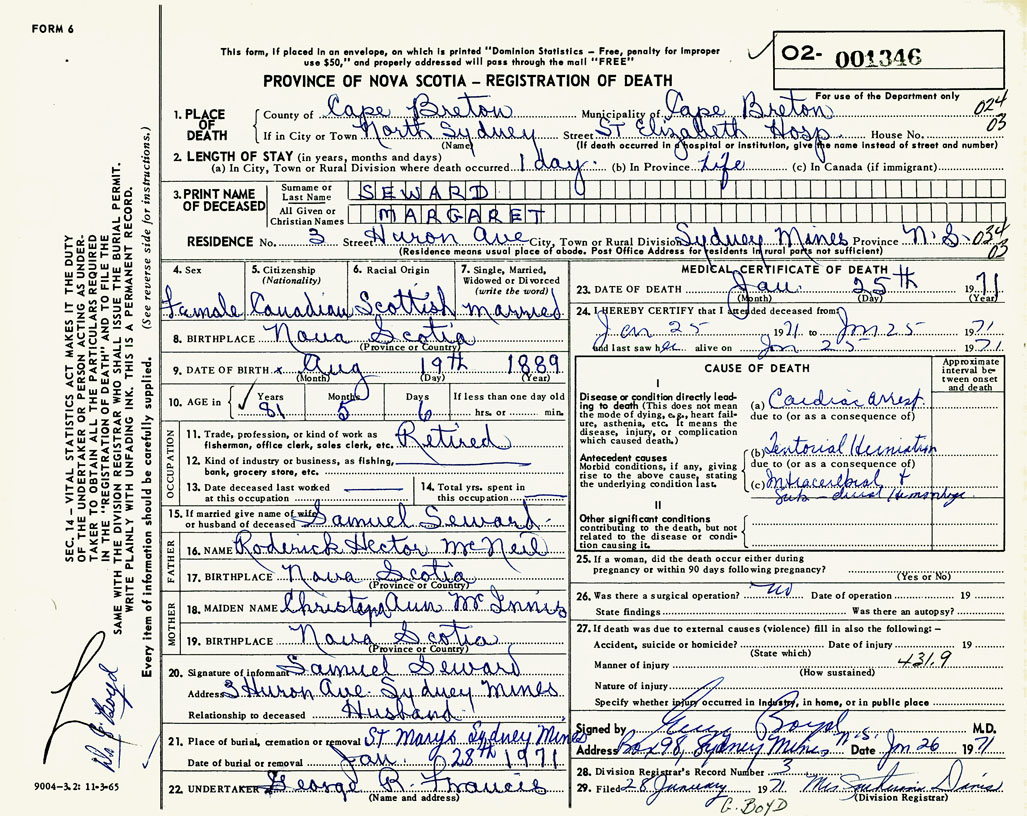 FORM 6
This form, if placed in an envelope, on which is printed "Dominion Statistics – Free, penalty for improper
use $50," and properly addressed will pass through the mail "FREE"
PROVINCE OF NOVA SCOTIA – REGISTRATION OF DEATH
O2- 001346
For use of the Department only
024
03
1. PLACE OF DEATH
County of Cape Breton Municipality of Cape Breton
If in City or Town North Sydney Street ST Elizabeth Hosp. House No.
(Name) (If death occurred in a hospital or institution, give the name instead of street and number)
2. LENGTH OF STAY (in years, months and days)
(a) In City, Town or Rural Division where death occurred 1 day. (b) In Province Life (c) In Canada (if immigrant)
3. PRINT NAME OF DECEASED
Surname or Last Name SEWARD
All Given or Christian Names MARGARET
RESIDENCE No. 3 Street Huron Ave City, Town or Rural Division Sydney Mines Province N.S. 034
03
(Residence means usual place of abode. Post Office Address for residents in rural parts not sufficient)
4. Sex Female
5. Citizenship (Nationality) Canadian
6. Racial Origin Scottish
7. Single, Married, Widowed or Divorced (write the word) married
8. BIRTHPLACE Nova Scotia
(Province or Country)
9. DATE OF BIRTH Aug 19th 1889
(Month) (Day) (Year)
10. AGE in Years 81 Months 5 Days 6 If less than one day old hrs. or min.
OCCUPATION
11. Trade, profession, or kind of work as fisherman, office clerk, sales clerk, etc. Retired
12. Kind of industry or business, as fishing, bank, grocery store, etc.
13. Date deceased last worked at this occupation
14. Total yrs. spent in this occupation
15. If married give name of wife or husband of deceased Samuel Seward
FATHER
16. NAME Roderick Hector McNeil
17. BIRTHPLACE Nova Scotia
(Province or Country)
MOTHER
18. MAIDEN NAME Ann McInnis
19. BIRTHPLACE Nova Scotia
(Province or Country)
20. Signature of informant Samuel Seward
Address 3 Huron Ave. Sydney Mines
Relationship to deceased Husband
21. Place of burial, cremation or removal ST Marys Sydney Mines
Date of burial or removal Jan. 28th 1971
22. UNDERTAKER George R. Francis
(Name and address)
MEDICAL CERTIFICATE OF DEATH
23. DATE OF DEATH Jan. 25th 1971
(Month) (Day) (Year)
24. I HEREBY CERTIFY that I attended deceased from:
Jan 25 1971 to Jan 25 1971
and last saw her alive on Jan 25 1971.
CAUSE OF DEATH
Approximate interval between onset and death
I
Disease or condition directly leading to death (This does not mean the mode of dying, e.g., heart failure, asthenia, etc. It means the disease, injury, or complication which caused death.)
(a) Cardiac arrest
due to (or as a consequence of)
Antecedent causes
Morbid conditions, if any, giving rise to the above cause, stating the underlying condition last.
(b) Tentorial Herniation
due to (or as a consequence of)
(c) Intracerebral &
Sub-dural Hemorrhage
II
Other significant conditions contributing to the death, but not related to the disease or condition causing it.
25. If a woman, did the death occur either during pregnancy or within 90 days following pregnancy?
(Yes or No)
26. Was there a surgical operation? no Date of operation 19
State findings Was there an autopsy?
27. If death was due to external causes (violence) fill in also the following: –
Accident, suicide or homicide? Date of injury 19
(State which)
Manner of injury 431.9
(How sustained)
Nature of injury
Specify whether injury occurred in Industry, in home, or in public place
Signed by Boyd M.D.
Address Box 98, Sydney Mines N.S. Date Jan 26 1971
28. Division Registrar's Record Number 3
29. Filed 28 January 1971 Mrs Davis
(Division Registrar)
G. BOYD
SEC. 14 – VITAL STATISTICS ACT MAKES IT THE DUTY
OF THE UNDERTAKER OR PERSON ACTING AS UNDER-
TAKER TO OBTAIN ALL THE PARTICULARS REQUIRED
IN THE "REGISTRATION OF DEATH" AND TO FILE THE
SAME WITH THE DIVISION REGISTRAR WHO SHALL ISSUE THE BURIAL PERMIT.
WRITE PLAINLY WITH UNFADING INK. THIS IS A PERMANENT RECORD.
Every item of information should be carefully supplied. (See reverse side for instructions.)
Dr. G Boyd
9004-3.2: 11-3-65